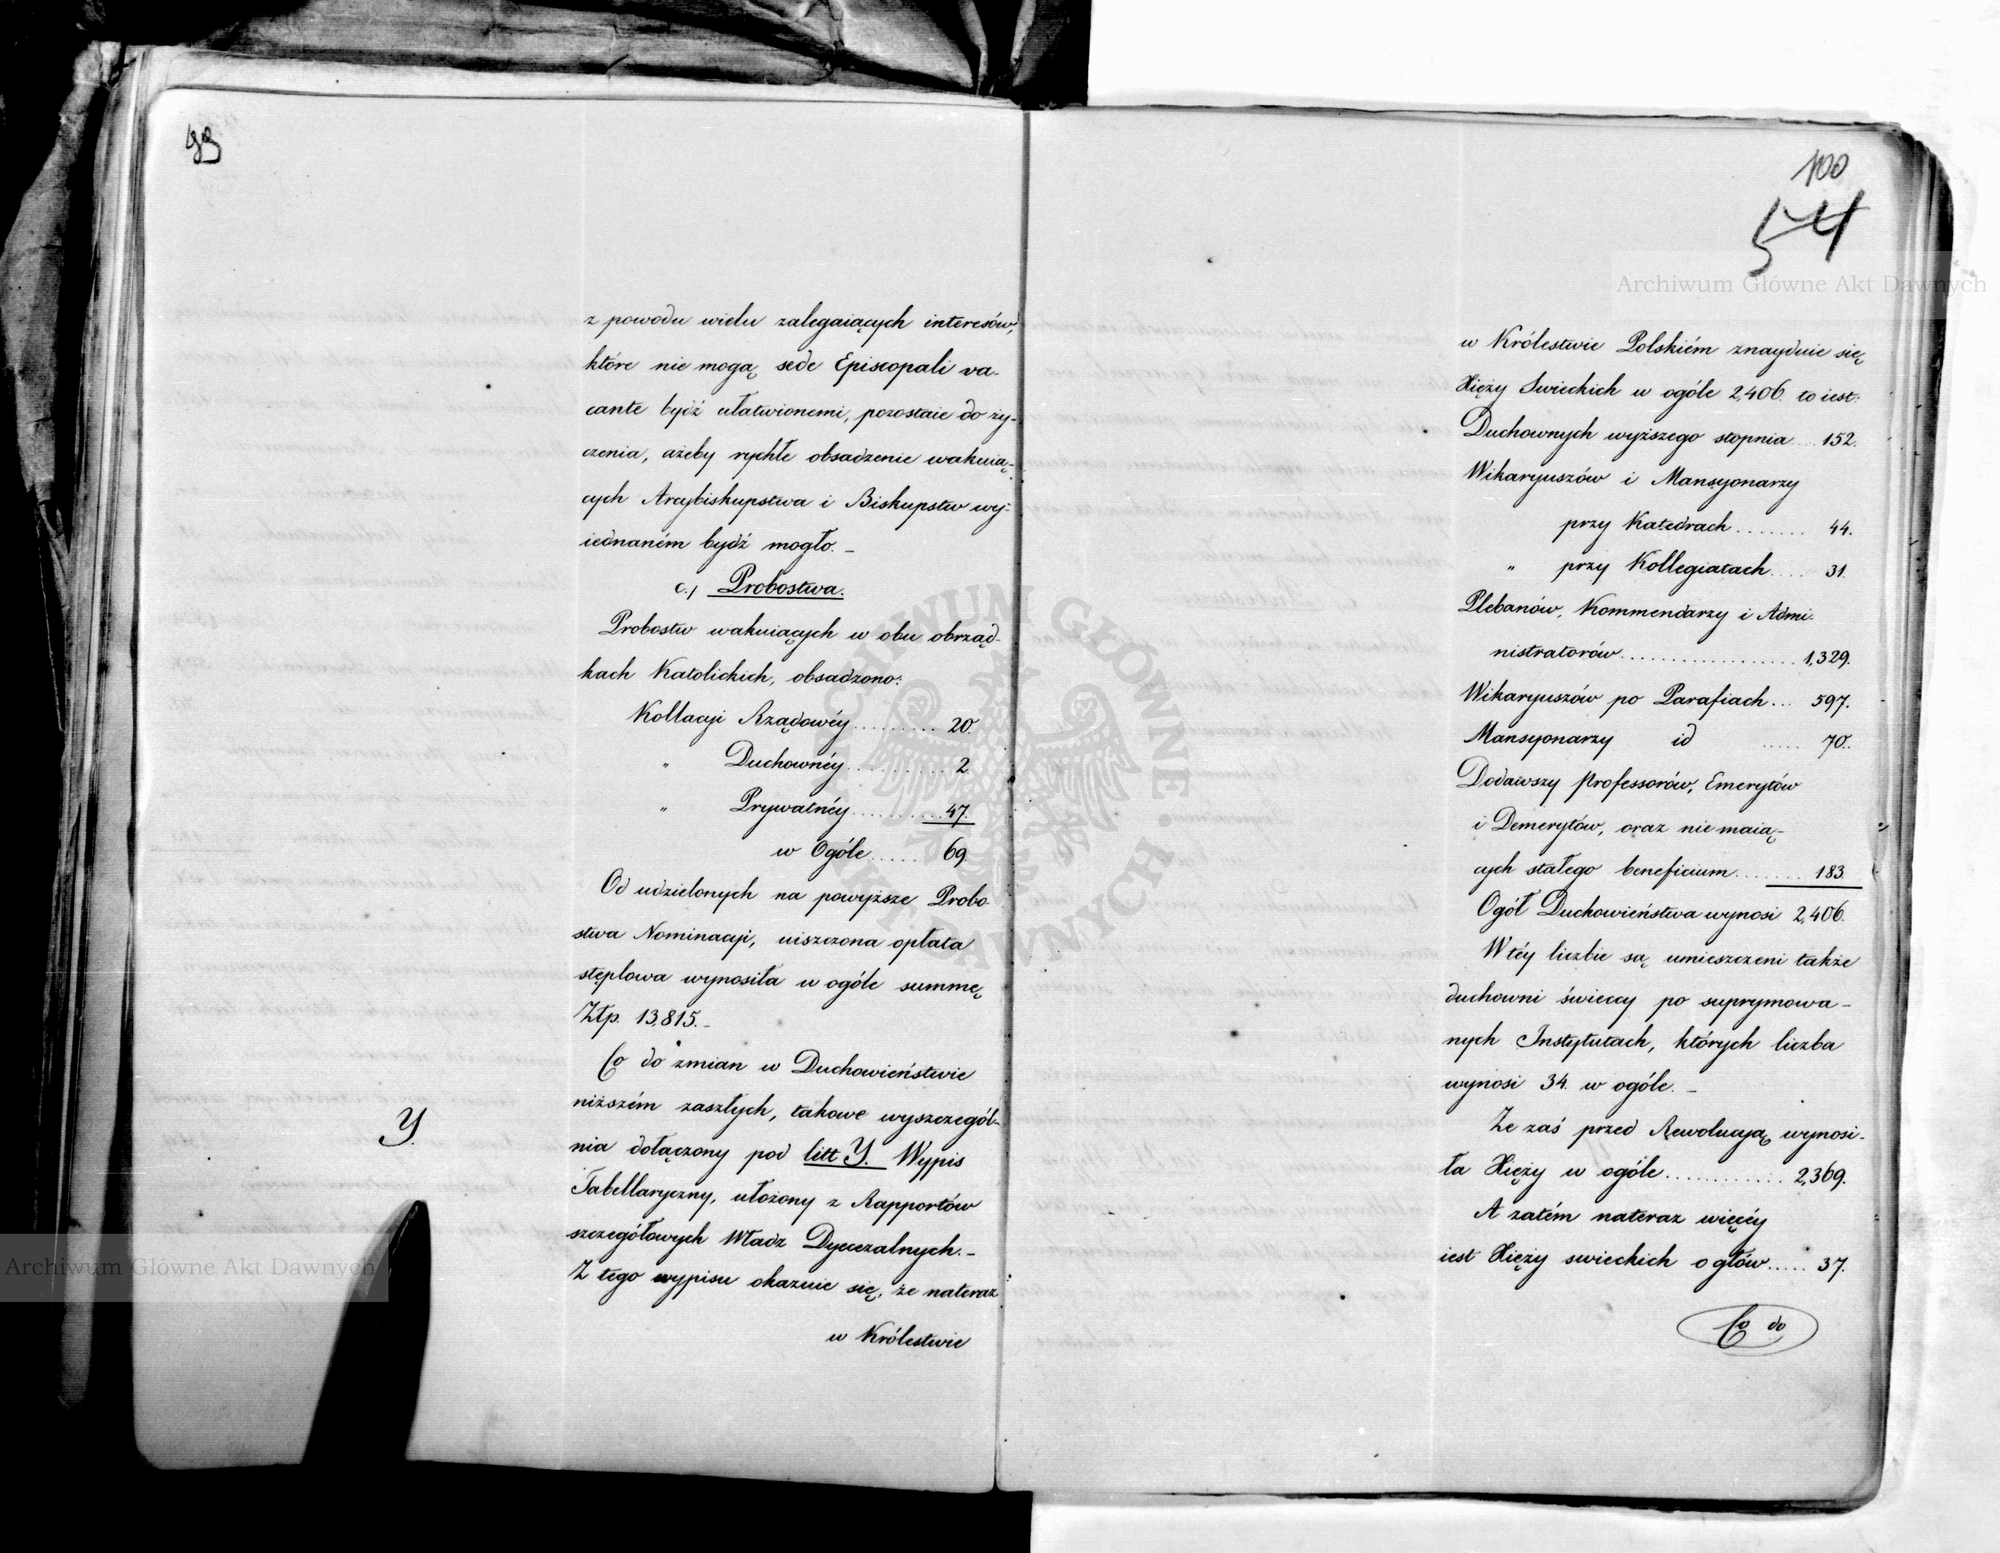 99
z powodu wielu zalegaiących interesów,
które nie mogą sede Episcopali va-
cante bydź ułatwionemi, pozostaie do ży-
czenia, ażeby rychłe obsadzenie wakuią-
cych Arcybiskupstwa i Biskupstw wy-
iednaném bydź mogło. -
c.) Probostwa.
Probostw wakuiących w obu obrząd-
kach Katolickich, obsadzono:
Kollacyi Rządowéy ......... 20.
" Duchownéy .......... 2.
" Prywatnéy ......... 47.
w Ogóle ..... 69.
Od udzielonych na powyższe Probo-
stwa Nominacyi, uiszczona opłata
stęplowa wynosiła w ogóle summę
Złp. 13,815. -
Co do zmian w Duchowieństwie
niższém zaszłych, takowe wyszczegól-
Y.
nia dołączony pod litt Y. Wypis
Tabellaryczny, ułożony z Rapportów
szczegółowych Władz Dyecezalnych. -
Z tego wypisu okazuie się, że nateraz
w Królestwie
100
54
w Królestwie Polskiém znayduie się
Xięży Swieckich w ogóle 2,406. to iest:
Duchownych wyższego stopnia ... 152.
Wikaryuszów i Mansyonarzy
przy Katedrach ....... 44.
" przy Kollegiatach .... 31.
Plebanów, Kommendarzy i Admi-
nistratorów .................. 1,329.
Wikaryuszów po Parafiach ... 597.
Mansyonarzy id ..... 70.
Dodawszy Professorów, Emerytów
i Demerytów, oraz nie maią-
cych stałego beneficium ....... 183.
Ogół Duchowieństwa wynosi 2,406.
W téy liczbie są umieszczeni także
duchowni świeccy po suprymowa-
nych Instytutach, których liczba
wynosi 34. w ogóle. -
Że zaś przed Rewolucyą wynosi-
ła Xięży w ogóle ............ 2,369.
A zatém nateraz więcéy
iest Xięży swieckich o głów ..... 37.
Co do
Archiwum Główne Akt Dawnych
Archiwum Główne Akt Dawnych
ARCHIWUM GŁÓWNE AKT DAWNYCH